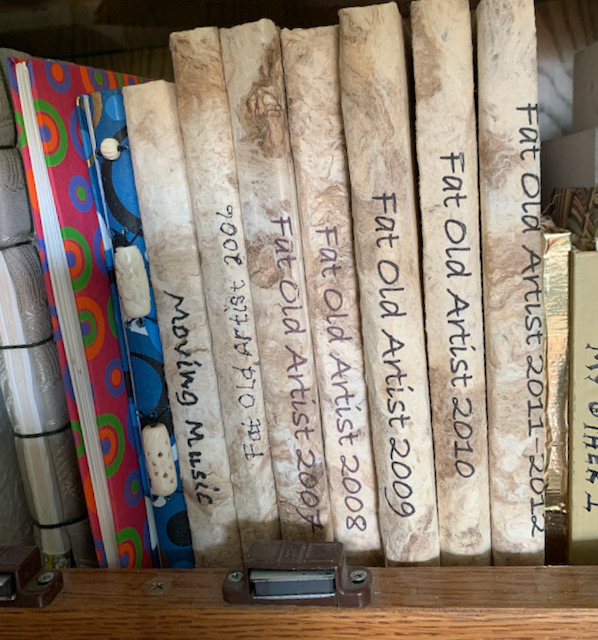 Moving Music
Fat Old Artist 2006
Fat Old Artist 2007
Fat Old Artist 2008
Fat Old Artist 2009
Fat Old Artist 2010
Fat Old Artist 2011-2012
MY OTHER L